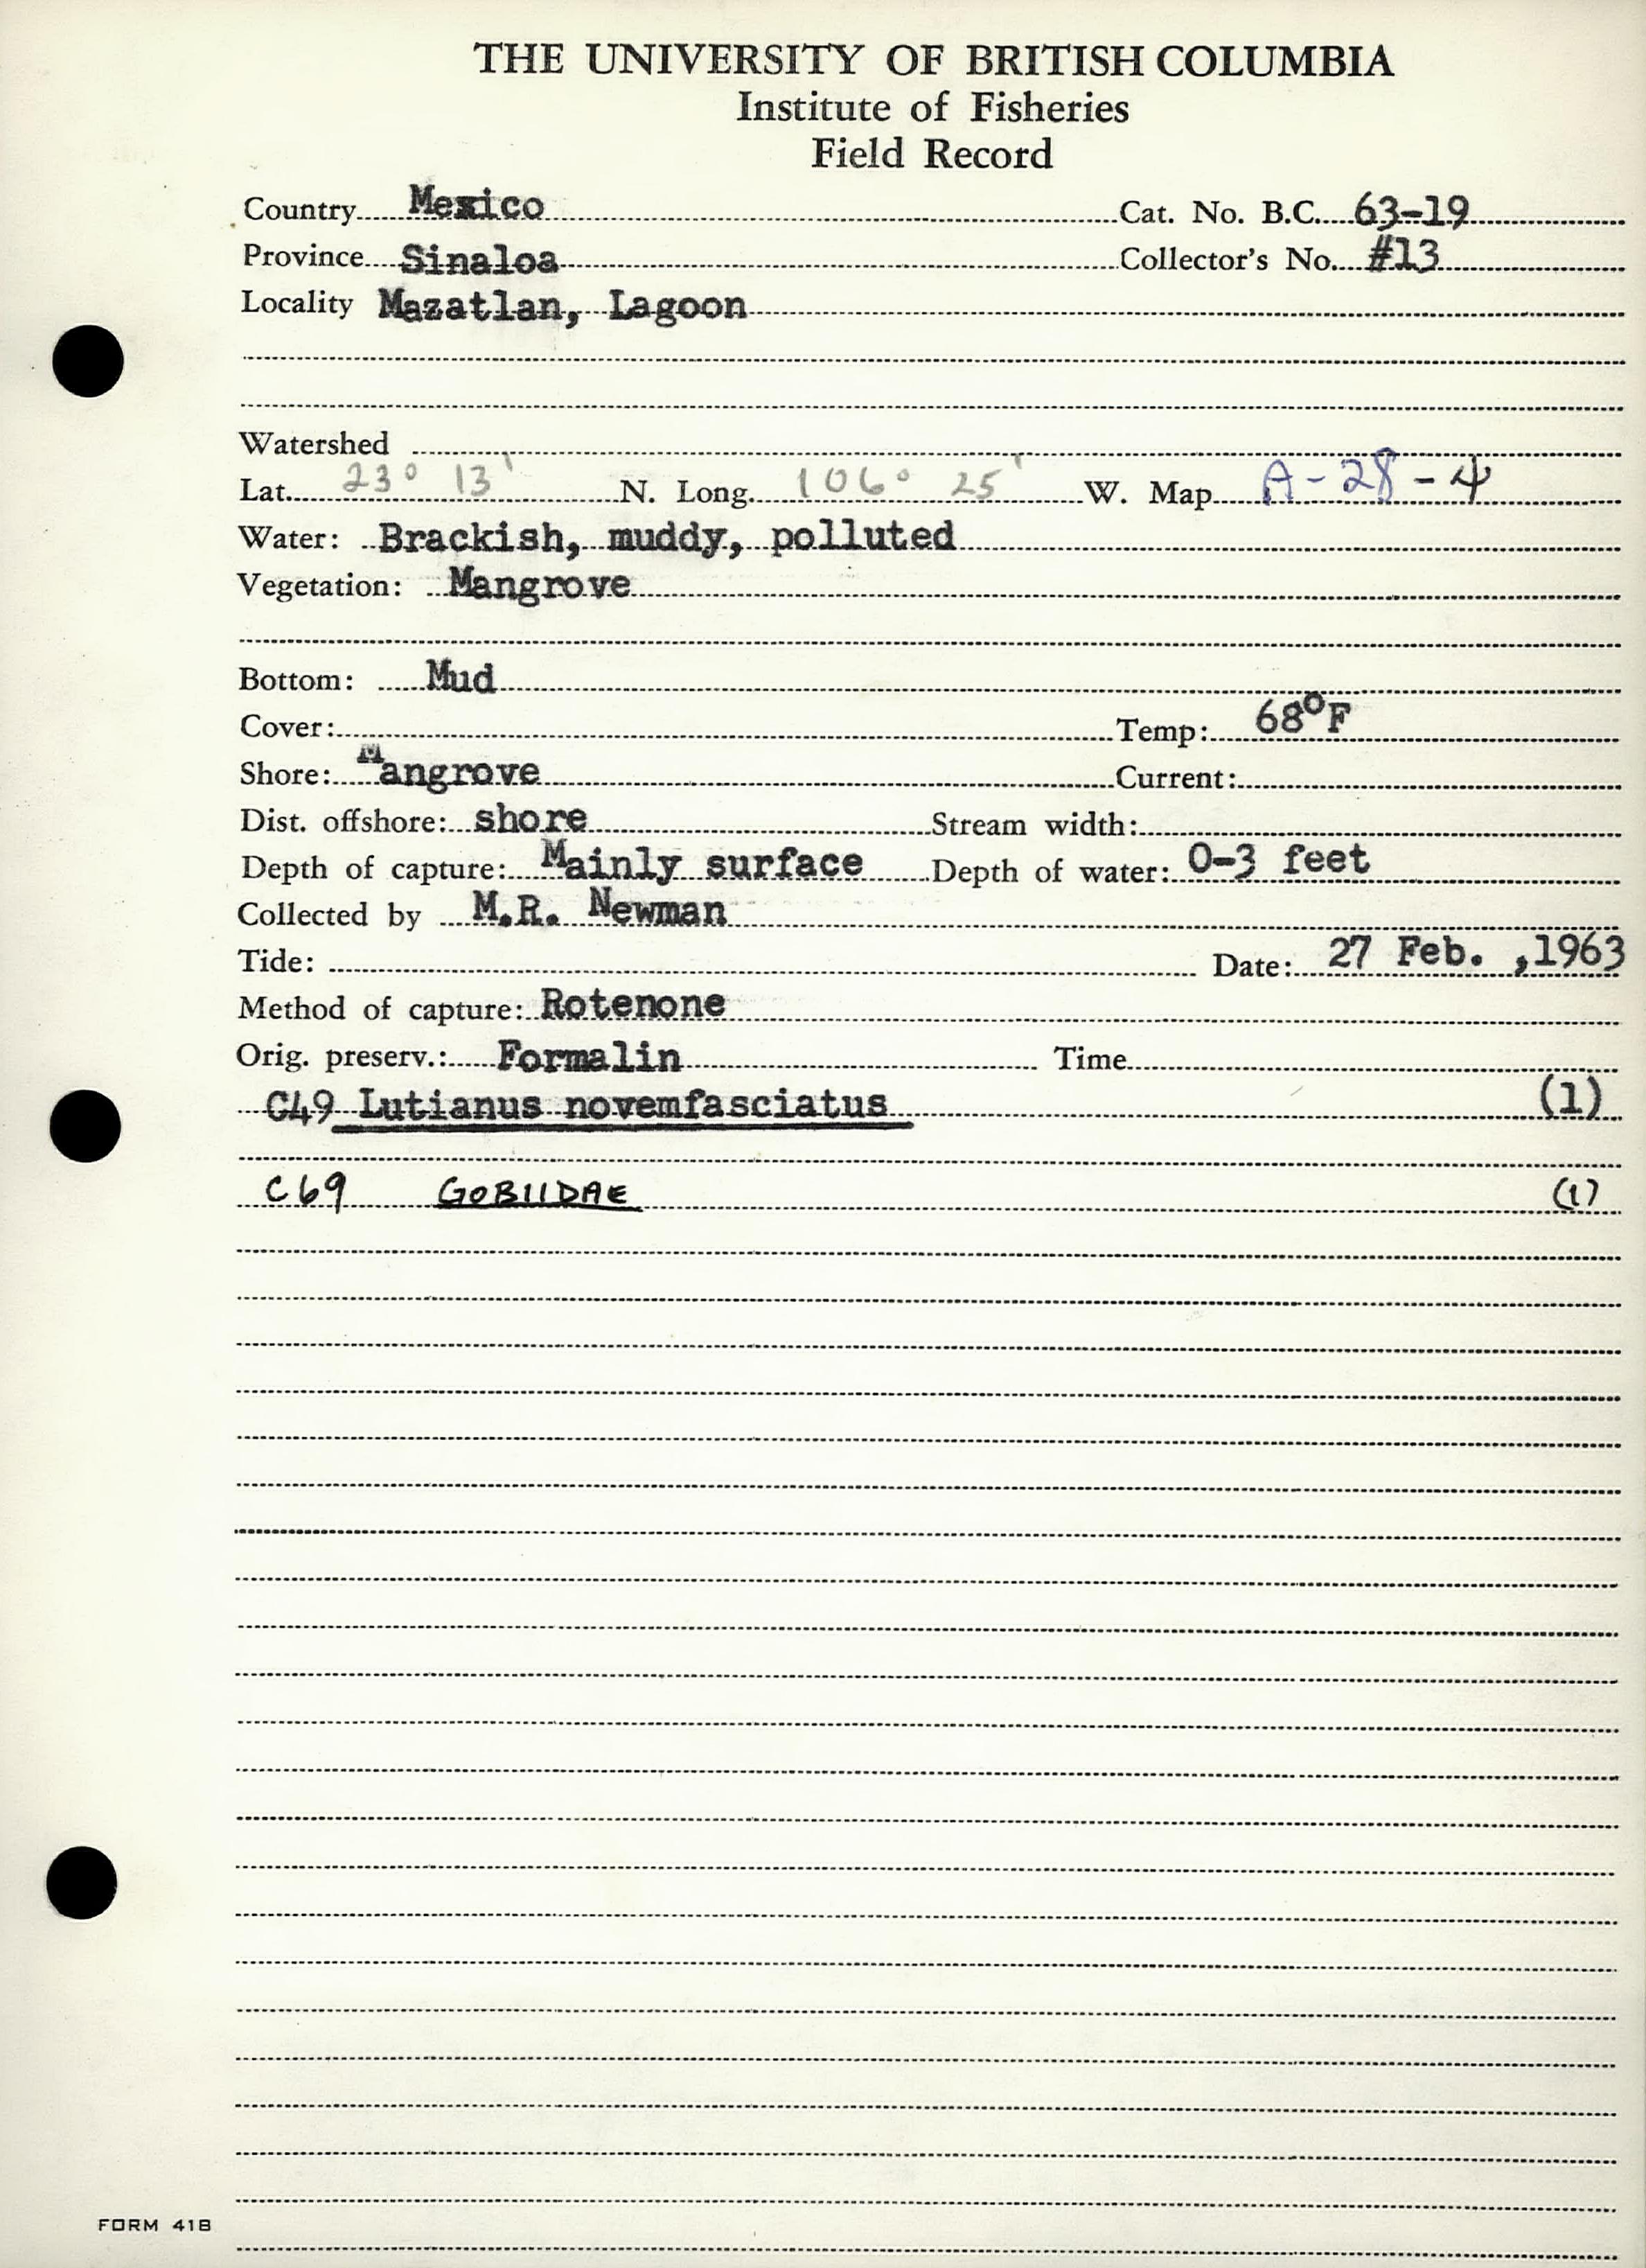 THE UNIVERSITY OF BRITISH COLUMBIA
Institute of Fisheries
Field Record
Country Mexico Cat. No. B.C. 63-19
Province Sinaloa Collector's No. #13
Locality Mazatlan, Lagoon
Watershed
Lat. 23° 13' N. Long. 106° 25' W. Map A-28-4
Water: Brackish, muddy, polluted
Vegetation: Mangrove
Bottom: Mud
Cover: Temp: 68°F
Shore: Mangrove Current:
Dist. offshore: shore Stream width:
Depth of capture: Mainly surface Depth of water: 0-3 feet
Collected by M.R. Newman
Tide: Date: 27 Feb. ,1963
Method of capture: Rotenone
Orig. preserv.: Formalin Time
C49 Lutianus novemfasciatus (1)
C69 GOBIIDAE (1)
FORM 41B